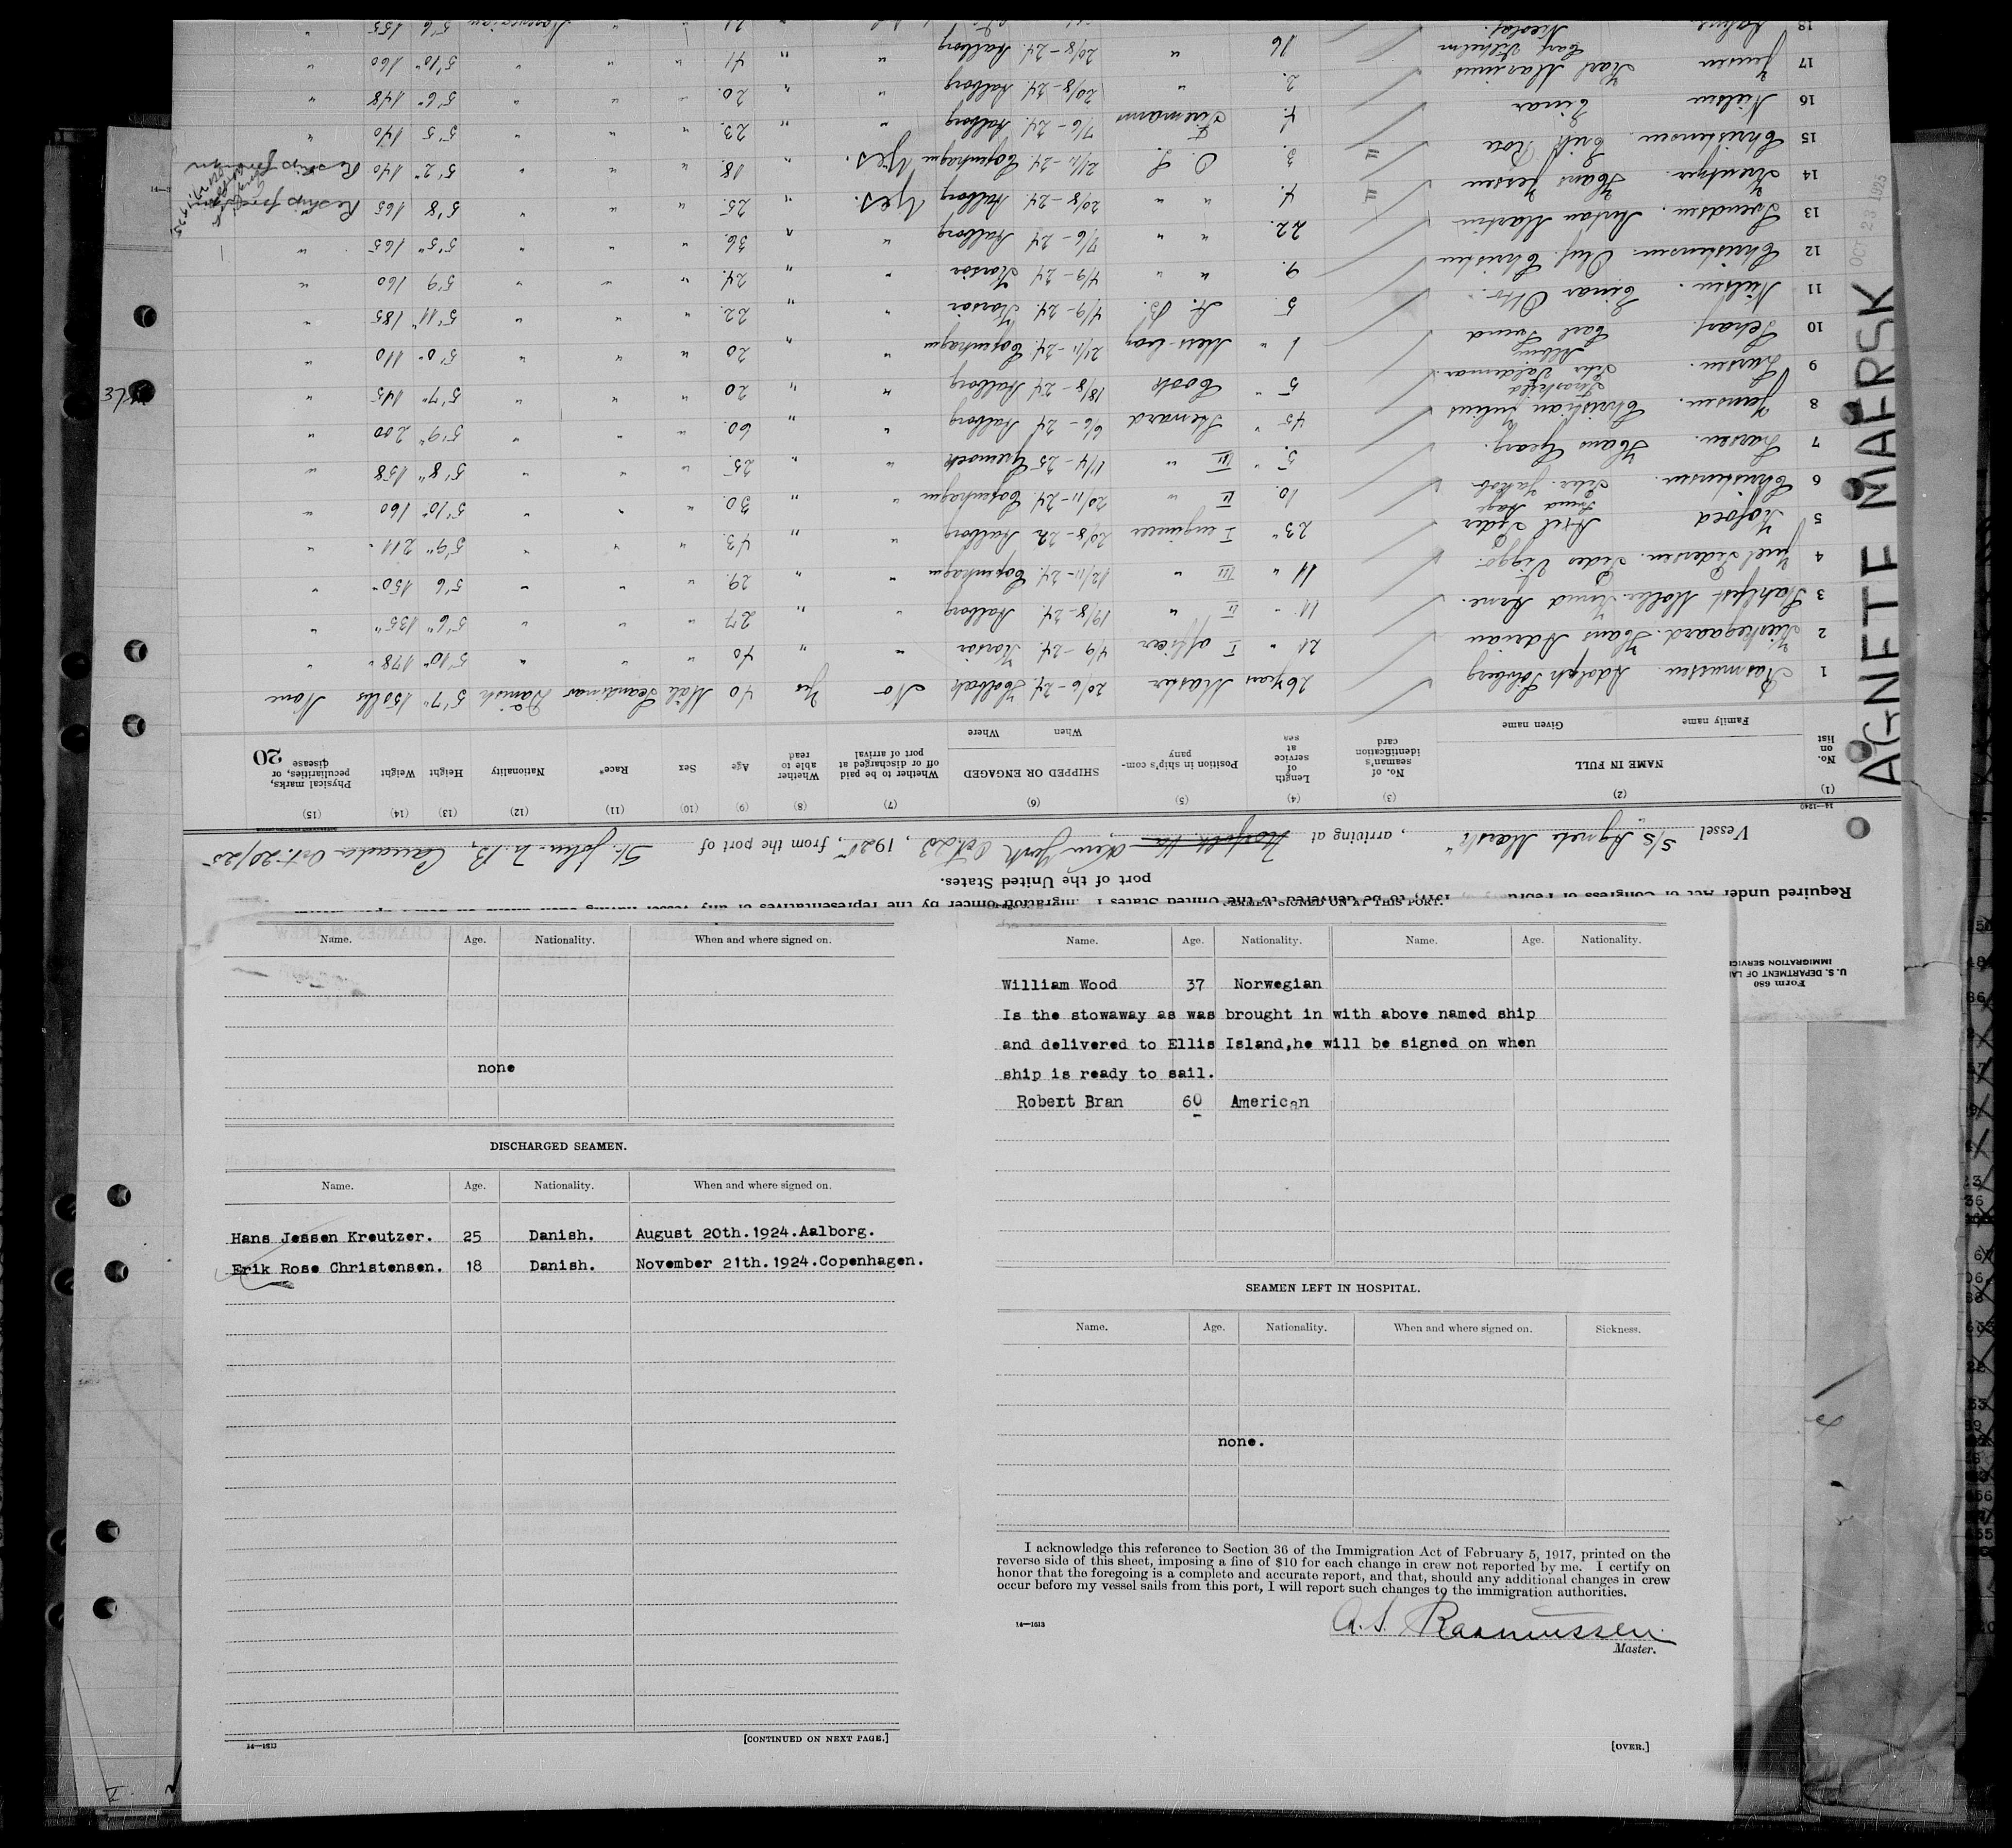 AGNETE MAERSK
OCT 23 1925
Form 680
U. S. DEPARTMENT OF
IMMIGRATION SERVICE
Required under Act of Congress of 1917, to be delivered to the United States Immigration officer by the representatives of any vessel
port of the United States.
Vessel S/S "Agnete Maersk", arriving at Norfolk Va New York Oct. 23, 1925, from the port of St. John. N.B, Canada Oct. 20/25
(1) (2) (3) (4) (5) (6) (7) (8) (9) (10) (11) (12) (13) (14) (15)
No. on list NAME IN FULL No. of seaman's identification card Length of service at sea Position in ship's company SHIPPED OR ENGAGED Whether to be paid off or discharged at port of arrival Whether able to read Age Sex Race* Nationality Height Weight Physical marks, peculiarities, or disease 20
Family name Given name When Where
1 Rasmussen Adolph 26 years Master 20/6-24 Holbæk No Yes 40 Male Scandinav Danish 5'7" 150 lbs None
2 Kierkegaard. Hans Adrian 21 " I officer 4/9-24. Korsör " " 40 " " " 5'10" 178 "
3 Møller. Knud Arne. 11 " II " 19/8-24 Aalborg " " 27 " " " 5'6" 135 "
4 Juel Pedersen. Peder Viggo. 11 " III " 12/11-24. Copenhagen " " 29. " " " 5'6 150 "
5 Kofoed Axel Peder 23 " I engineer 20/8-22 Aalborg " " 43. " " " 5'9" 211 "
6 Christensen. 10. II " 20/11-24. Copenhagen " " 30. " " " 5'10" 160 "
7 Larsen. Hans Georg. 5. " III " 11/4-25 " " 25. " " " 5'8" 158 "
8 Jensen. Christian Julius 45 " Steward 6/6-24 Aalborg " " 60. " " " 5'9" 200 "
9 Larsen. Valdemar. 5 " Cook 18/8-24 Aalborg " " 20 " " " 5'7" 145 "
10 Carl Svend 1 " Mess-boy 21/11-24. Copenhagen " " 20 " " " 5'0" 110 "
11 Nielsen. Einar Otto. 5 A. B. 4/9-24. Korsör " " 22. " " " 5'11" 185 "
12 Christensen. Oluf Christen 9. " " 4/9-24 Korsör " " 24. " " " 5'9 160 "
13 Svendsen. Anton Martin 22. " " 7/6-24 Aalborg " " 36. " " " 5'5" 165 "
14 Kreutzer. Hans Jessen 4. " " 20/8-24. Aalborg Yes. " 25. " " " 5'8 165 Reship foreign
15 Christensen. Erik Rose 3. O. S. 21/11-24. Copenhagen Yes. " 18. " " " 5'2" 140 Reship foreign
16 Nielsen Einar 4. Firemann 7/6-24. Aalborg " " 23. " " " 5'5 140
17 Jensen Karl Marinus 2. " 20/8-24. Aalborg " " 20. " " " 5'6" 148 "
18 Carl Vilhelm 16 " 20/8-24. Aalborg " " 41 " " " 5'10" 160 "
Nicolaj 21 Norwegian 5'6 155 "
Name. Age. Nationality. When and where signed on.
none
DISCHARGED SEAMEN.
Name. Age. Nationality. When and where signed on.
Hans Jessen Kreutzer. 25 Danish. August 20th.1924.Aalborg.
Erik Rose Christensen. 18 Danish. November 21th.1924.Copenhagen.
14—1613 [CONTINUED ON NEXT PAGE.]
SEAMEN SIGNED ON AT THIS PORT.
Name. Age. Nationality. Name. Age. Nationality.
William Wood 37 Norwegian
Is the stowaway as was brought in with above named ship
and delivered to Ellis Island,he will be signed on when
ship is ready to sail.
Robert Bran 60 American
SEAMEN LEFT IN HOSPITAL.
Name. Age. Nationality. When and where signed on. Sickness.
none.
I acknowledge this reference to Section 36 of the Immigration Act of February 5, 1917, printed on the
reverse side of this sheet, imposing a fine of $10 for each change in crew not reported by me. I certify on
honor that the foregoing is a complete and accurate report, and that, should any additional changes in crew
occur before my vessel sails from this port, I will report such changes to the immigration authorities.
14—1613
A. S. Rasmussen
Master.
[OVER.]